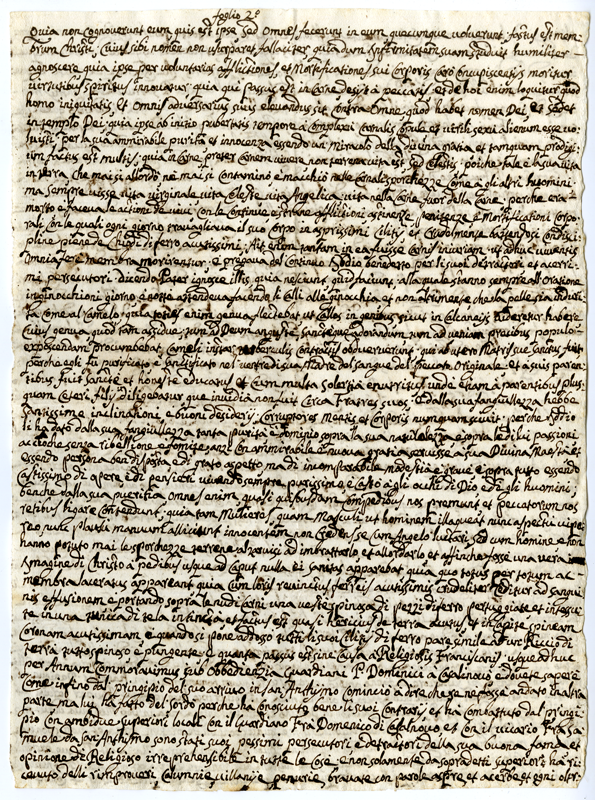 foglio 2º
Quia non cognoverunt eum quis est ipse sed Omnes fecerunt in eum quacumque voluerunt: factus est mem-
brum Christi, cuius sibi nomen non usurparet fallaciter quia dum Infirmitatem suam studuit humiliter
agnoscere quia ipse per voluntarias afflictiones, et Mortificationes, sui Corporis caro concupiscentiis moritur
virtutibus spiritus innovatur quia qui passus est in carne desijt a peccatis, et de hoc enim loquitur quod
homo iniquitatis et Omnis adversarius eius elevandus sit contra Omne quod habet nomen Dei, et sedet
in templo Dei: quia ipse ab initio pubertatis tempore a Complexu Carnalis Copule et virili sexu alienum esse vo-
luisti per la sua ammirabile purità et innocenza essendo un Miracolo della divina gratia et tamquam prodigi-
um factus est multis: quia in Carne preter Carnem vivere non terrena vita est sed Celestis: poiche tale è la sua vita
in terra, che mai si allordò ne mai si contaminò è macchiò nelle Carnali sporchezze Come a gli altri huomini
ma sempre visse vita virginale vita Celeste vita Angelica vita nella Carne fuor della Carne: perche era
morto e faceva le ationi de vivi con le Continue e strane afflittioni astinenze penitenze e Mortificationi Corpo-
rali con le quali ogni giorno travagliava il suo Corpo in asprissimi Cilitij et Crudelmente bastendosi con disci-
pline piene de Chiodi di ferro acutissimi:
Omnia fere membra morirentur: e pregava del Continuo Iddio benedetto per li suoi detrattori et acerri-
mi persecutori: dicendo Pater ignosce illis, quia nesciunt quid faciunt: alla quale stanno sempre all'oratione
inginocchioni giorno e notte attendeva facendo li Calli alle ginocchia et non altrimente che da pelle si a induri-
ta come al Camelo: quia toties enim genua flectebat ut Callos in genibus sicut in calcaneis videretur habere
Cuius genua quod tam assidue tum ad Deum anguste sancteque adorandum tum ad veniam precibus populo
exposcendam procumbebat, Cameli instar tuberculis contractis obduruerunt: qui ab utero Matris sue Sanctus fuit
perche egli fù purificato e santificato nel ventre di sua Madre del sangue del peccato Originale: et a suis paren-
tibus fuit sancte et honeste educatus et cum multa solertia enutritus unde etiam a parentibus plus-
quam ceteri filij diligebatur que invidia non fuit circa Fratres suos: e dalla sua fanciullezza hebbe
santissime inclinationi e buoni desiderij: Corruptores Mentis et Corporis numquam scivit: perche Iddio
li ha dato dalla sua fanciullezza tanta purità e dominio sopra la sua naturalezza e sopra le di lui passioni
accioche senza ribellione e fomite, anzi con ammirabile e nuova gratia servisse a sua Divina Maestà et
essendo persona ben disposta e di grato aspetto ma di incomparabile modestia e grave e sopra tutto essendo
castissimo di opere e di pensieri vivendo sempre purissimo e casto à gli occhi di Dio e degli huomini;
benche dalla sua pueritia omnes enim, quasi quibusdam Compedibus nos premunt et peccatorum nos
retibus ligare contendunt: quia tam Mulieres quam Masculi ut hominem illaqueit nunc aspectu vipe-
reo nunc plausu manuum alliciunt innocentem non Creden, se cum Angelo luctari, sed cum homine e non
hanno potuto mai le sporchezze terrene alzarsi ad imbrattarlo et allordarlo et affinche fosse una vera
Imagine di Christo a pedibus usque ad Caput nulla ei sanitas apparebat quia quo totus per totum ac
membra laceratus appareant quia cum loris revinctus ferreis acutissimis Crudeliter Editur ad sangui-
nis effusionem e portando sopra le nudi carni una veste spinosa di pezzi di ferro pertugiate et intessu-
te in una tunica di tela intrecciata et factus est quasi hericius de terra acutus et in capite spineam
Coronam acutissimam e quando si pone addosso tutti li suoi Cilitij di ferro pare simile ad un Riccio di
terra tutto spinoso e pungente: e quanta passus est sine Causa a Religiosis Franciscanis usque ad huc
per Annum Commoravimus sub Obbedienzia Guardiani P. Dominici a Casalnovo: e dovete sapere
come in fino dal principio del suo arrivo in San Anthimo cominciò à dire che se ne fosse andato in altra
parte, ma lui ha fatto del sordo perche ha conosciuto bene li suoi Contrarij et ha Combattuto dal princi-
pio con ambidue superiori locali con il Guardiano Frà Domenico di Casalnovo et con il vicario Frà Sa-
muele da san Anthimo sono stati suoi pessimi persecutori e detrattori della sua buona fama et
opinione di Religioso irreprehensibile in tutte le cose: e non solamente da sopradetti superiori ha ri-
cevuto delli rimproveri Calumnie villanie penurie, bravate con parole aspre et acerbe et ogni altri